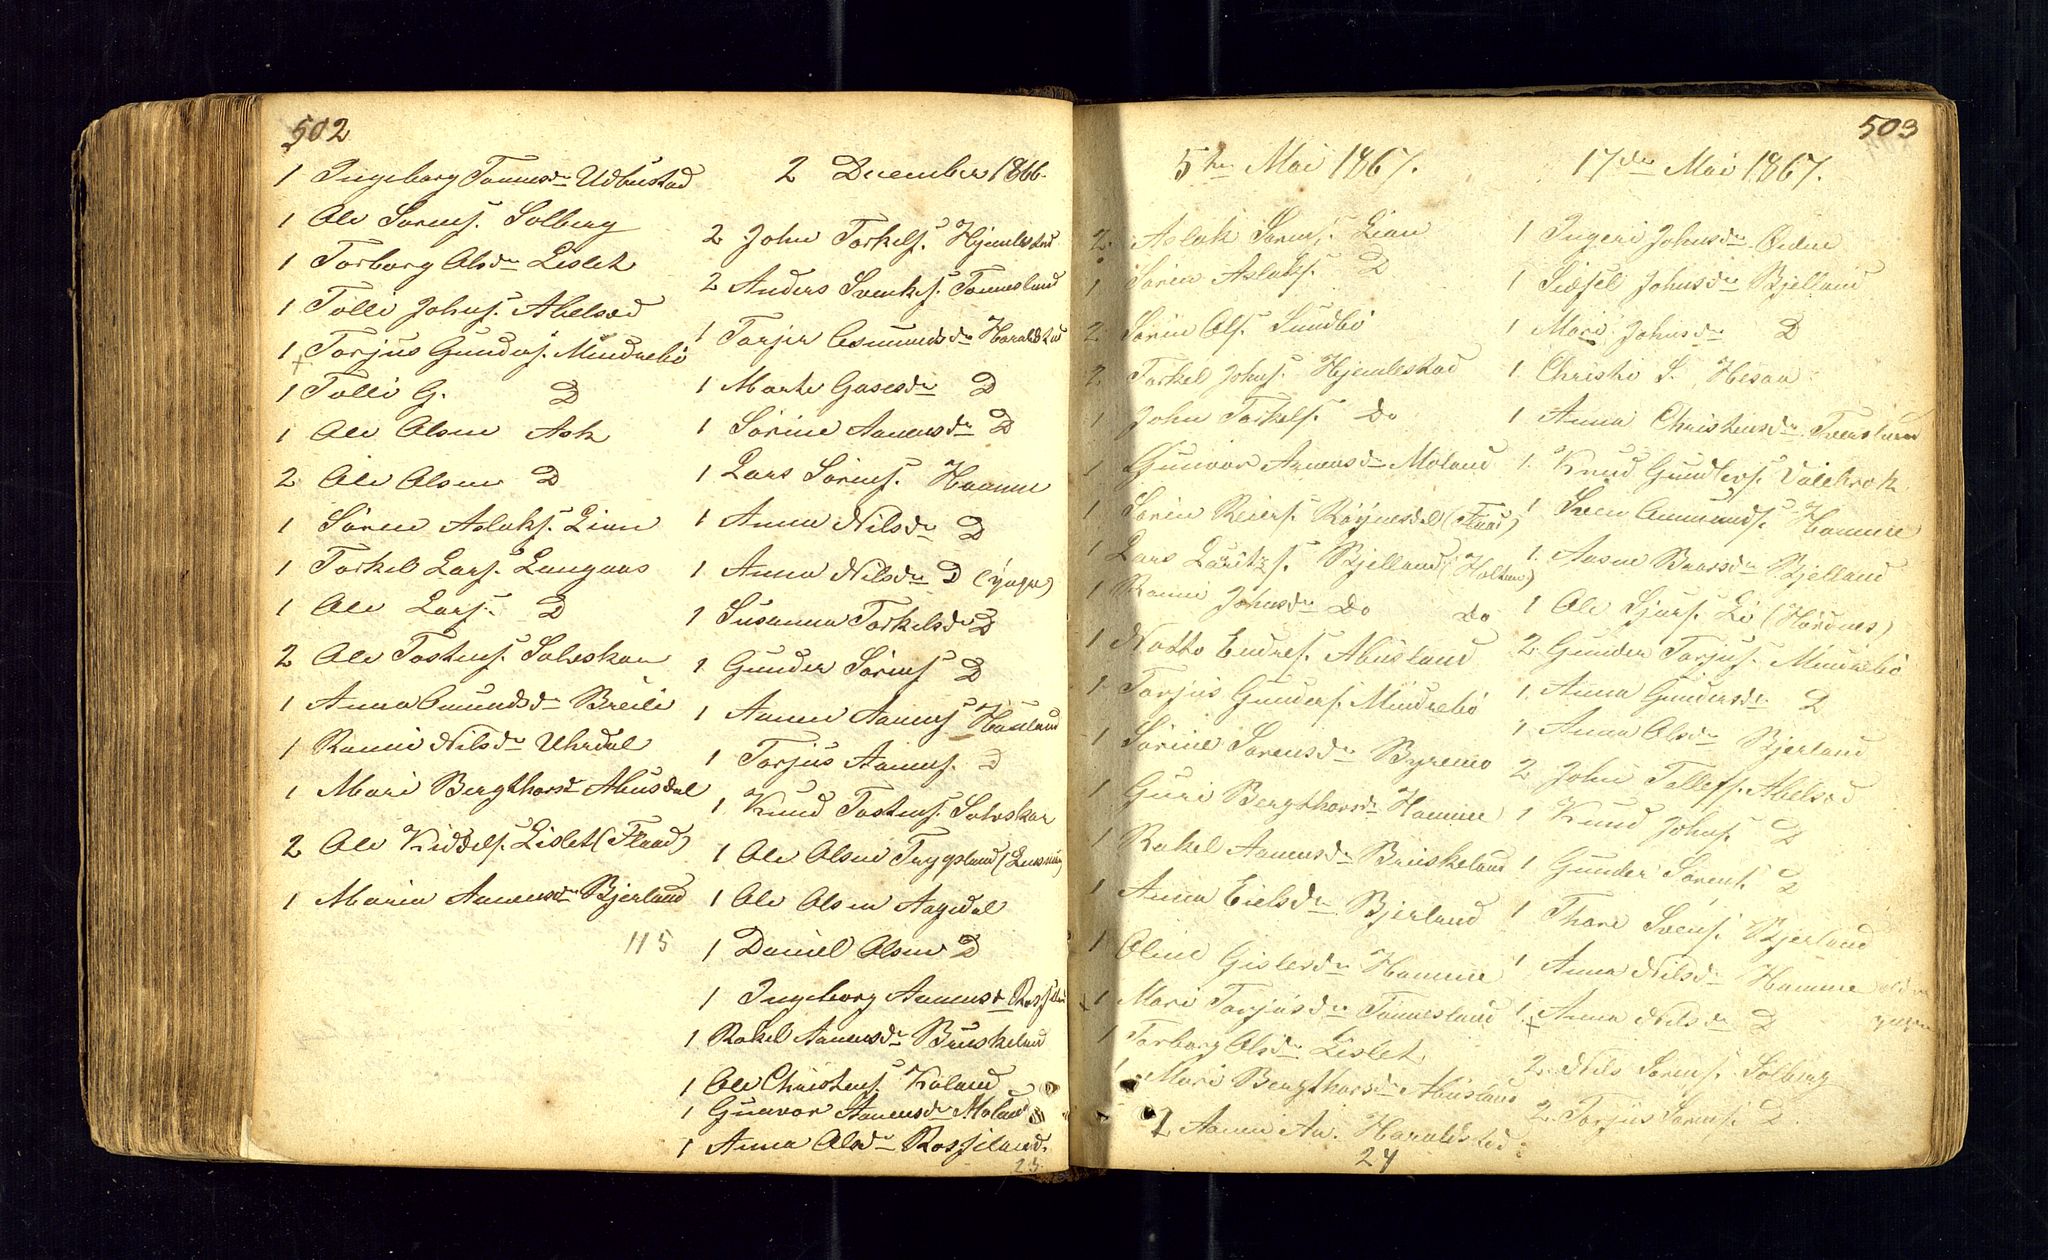 502
1 Ingeborg Tønnesdr Udbustad
1 Ole Sørens. Solberg
1 Torborg Olsdr Lislet
1 Tolli Johns. Abelsød
1 Torjus Gunders. Mindrebø
1 Tolli G. D
1 Ole Olsen Ask
2 Ole Olsen D
1 Søren Aslaks. Lian
1 Torkel Lars. Langaas
1 Ole Lars. D
2 Ole Tostens. Solvskar
1 Anna Omundsdr Breili
1 Ranni Nilsdr Uhrdal
1 Mari Bergthorsdr Abusdal
2 Ole Kiddels. Lislet (Flaad)
1 Maria Aanensdr Bjerland
115
2 December 1866.
2 John Torkels. Hjemlestad
2 Anders Svenks. Tønnesland
1 Torjer Asmundsdr Haraldstad
1 Marte Gasesdr D
1 Sørine Aanensdr D
1 Lars Sørens. Homme
1 Anna Nilsdr D
1 Anna Nilsdr D (yngre)
1 Susanna Torkelsdr D
1 Gunder Sørens D
1 Aanen Aanens Houland
1 Torjus Aanens. D
1 Knud Tostens. Solvskar
1 Ole Olsen Trygsland
1 Ole Olsen Aagedal
1 Daniel Olsen D
1 Ingeborg Aanensdr
1 Rakel Aanensdr Bruskeland
1 Ole Christens. Røland
1 Gunvor Aanensdr Moland
1 Anna Olsdr Rossiland.
23
503
5te Mai 1867.
2 Aslak Sørens. Lian
1 Søren Aslaks. D
2 Søren Ols. Sundbø
2 Torkel Johns. Hjemlestad
1 John Torkels. Do
1 Gunvor Aanensdr Moland
1 Søren Reiers. Røynesdal (Flaad)
1 Lars Lauritzs. Bjelland (Holten)
1 Ranni Johnsdr Do Do
1 Notto Endres. Abusland
1 Torjus Gunders. Mindrebø
1 Sørine Sørensdr Byremo
1 Guri Bergthorsdr Homme
1 Rakel Aanensdr Bruskeland
1 Anna Eielsdr Bjerland
1 Oline Gislesdr Homme
1 Mari Torjusdr Tønnesland
1 Torborg Olsdr Lislet
1 Mari Bergthorsdr Abusland
2 Aanen An. Haraldstad.
24
17de Mai 1867.
1 Ingeri Johnsdr Øidne
1 Sidsel Johnsdr Bjelland
1 Mari Johnsdr D
1 Christi S. Hesaa
1 Anna Christensdr Tversland
1 Knud Gundlers. Valebrok
1 Sven Aamunds. Homme
1 Aasne Baarsdr Bjelland
1 Ole Sjurs. Lø (Hørdnes)
2 Gunder Torjus. Mindrebø
1 Anna Gundersdr D
1 Anna Olsdr Bjerland
2 John Tellefs. Abelsød
1 Knud Johns. D
1 Gunder Sørens. D
1 Thore Svens. Bjerland
1 Anna Nilsdr Homme ældre
1 Anna Nilsdr D yngre
2 Nils Sørens. Solberg
2 Torjus Sørens. D.